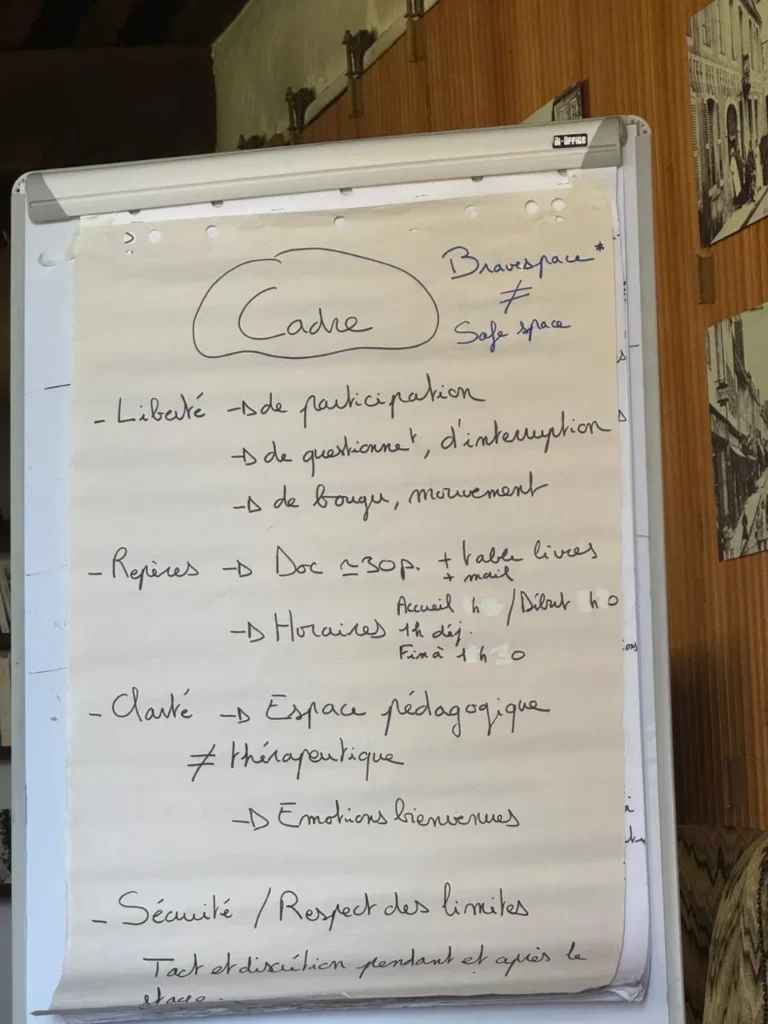 Bi-OFFiCE
Bravespace*
≠
Safe space
Cadre
- Liberté → de participation
→ de questionnet, d'interruption
→ de bouger, mouvement
- Repères → Doc ≃30p. + table livres
+ mail
Accueil h / Début h 0
→ Horaires 1h déj.
Fin à 1 h 0
- Clarté → Espace pédagogique
≠ thérapeutique
→ Emotions bienvenues
- Sécurité / Respect des limites
Tact et discrétion pendant et après le
stage.